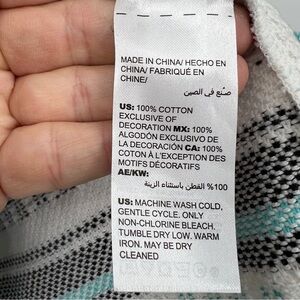 MADE IN CHINA/ HECHO EN
CHINA/ FABRIQUÉ EN
CHINE/
صنع في الصين
US: 100% COTTON
EXCLUSIVE OF
DECORATION MX: 100%
ALGODÓN EXCLUSIVO DE
LA DECORACIÓN CA: 100%
COTON À L'EXCEPTION DES
MOTIFS DÉCORATIFS
AE/KW:
100% القطن باستثناء الزينة
US: MACHINE WASH COLD,
GENTLE CYCLE. ONLY
NON-CHLORINE BLEACH.
TUMBLE DRY LOW. WARM
IRON. MAY BE DRY
CLEANED